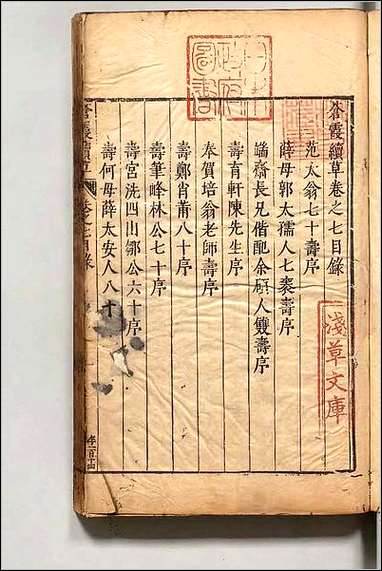 蒼霞續草卷之七目錄
范太翁七十壽序
薛母郭太孺人七袠壽序
端齋長兄偕配余碩人雙壽序
壽育軒陳先生序
奉賀培翁老師壽序
壽鄭肖莆八十序
壽筆峰林公七十序
壽宮洗四山鄒公六十序
壽何母薛太安人八十
蒼霞續草
卷之七目錄
淺草文庫
圖書